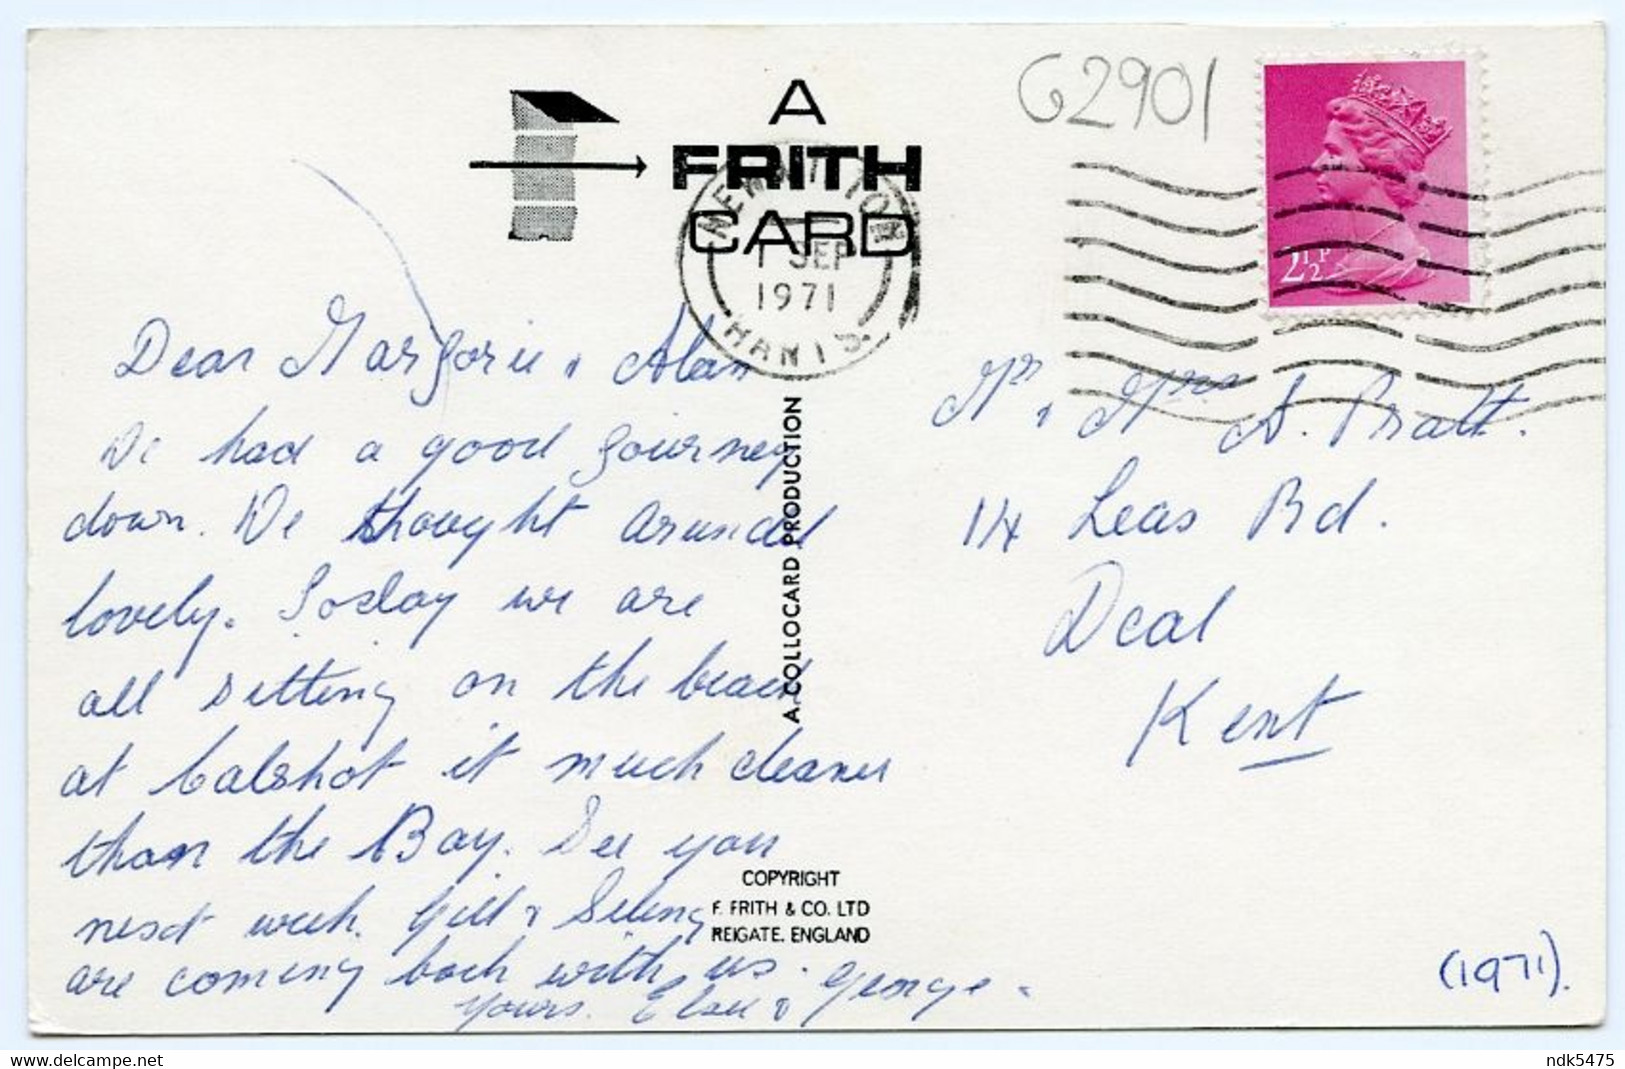 A
FRITH
CARD
G2901
NEW MILTON
1 SEP
1971
HANTS.
2½P
Dear Margorie & Alan
We had a good journey
down. We thought arundel
lovely. Today we are
all sitting on the beach
at Calshot it much cleaner
than the Bay. See you
next week. Gill &
are coming back with us.
Yours. Elsie & George.
A COLLOCARD PRODUCTION
COPYRIGHT
F. FRITH & CO. LTD
REIGATE. ENGLAND
Mr & Mrs A. Pratt.
14 Leas Rd.
Deal
Kent
(1971).
ndk5475